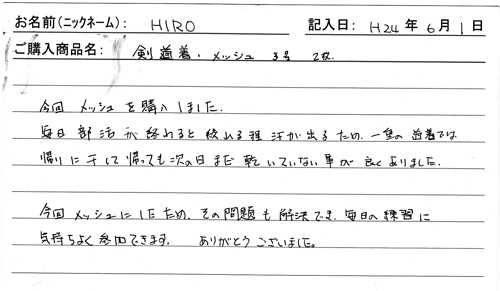 お名前(ニックネーム): HIRO 記入日: H24年 6月 1日
ご購入商品名: 剣道着・メッシュ 3号 2枚
今回 メッシュ を購入しました.
毎日 部活が終わると絞れる程 汗が出るため、一重の道着では
帰りに干して帰っても次の日まだ乾いていない事が良くありました.
今回メッシュにしたため、その問題も解決でき、毎日の練習に
気持ちよく参加できます. ありがとうございました。